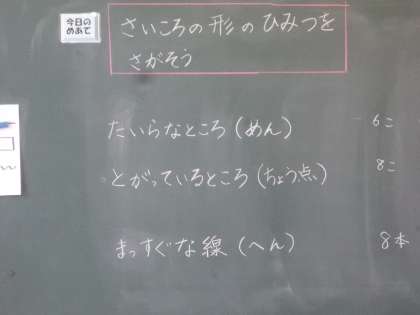 今日の
めあて
さいころの形のひみつを
さがそう
たいらなところ(めん) 6こ
とがっているところ(ちょう点) 8こ
まっすぐな線(へん) 8本